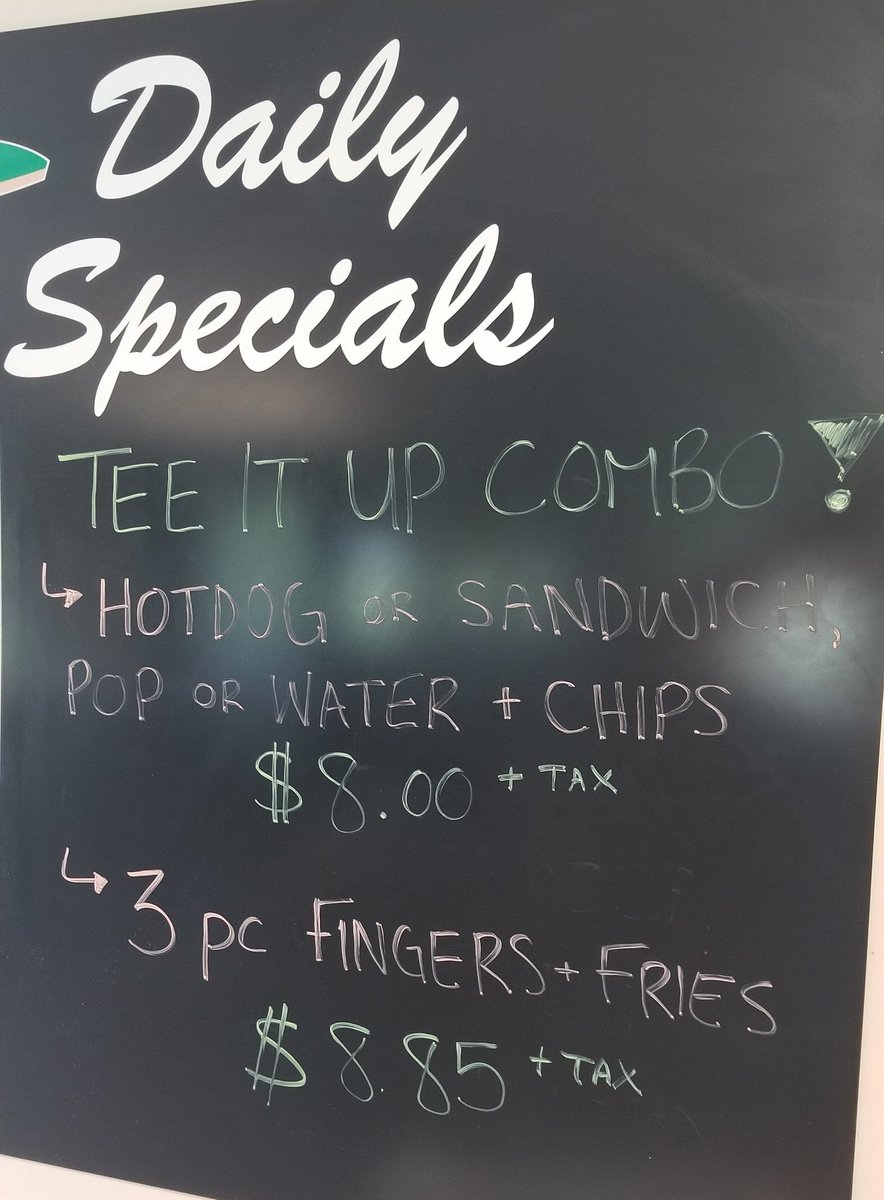 Daily
Specials
TEE IT UP COMBO!
↳ HOTDOG OR SANDWICH,
POP OR WATER + CHIPS
$8.00 + TAX
↳ 3 pc FINGERS + FRIES
$8.85 + TAX